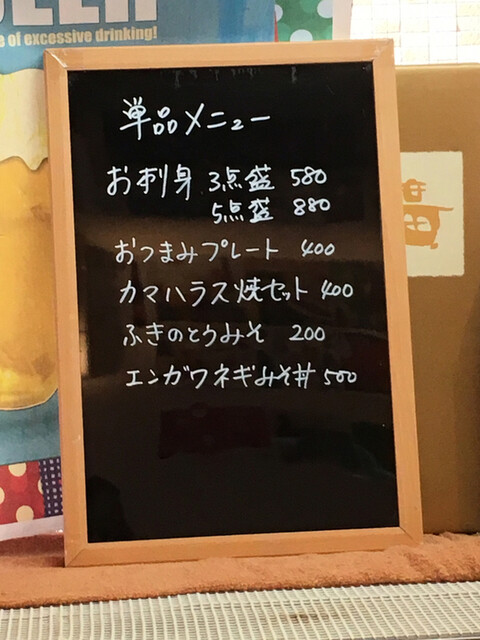 e of excessive drinking!
単品メニュー
お刺身 3点盛 580
5点盛 880
おつまみプレート 400
カマハラス焼セット 400
ふきのとうみそ 200
エンガワネギみそ丼 500